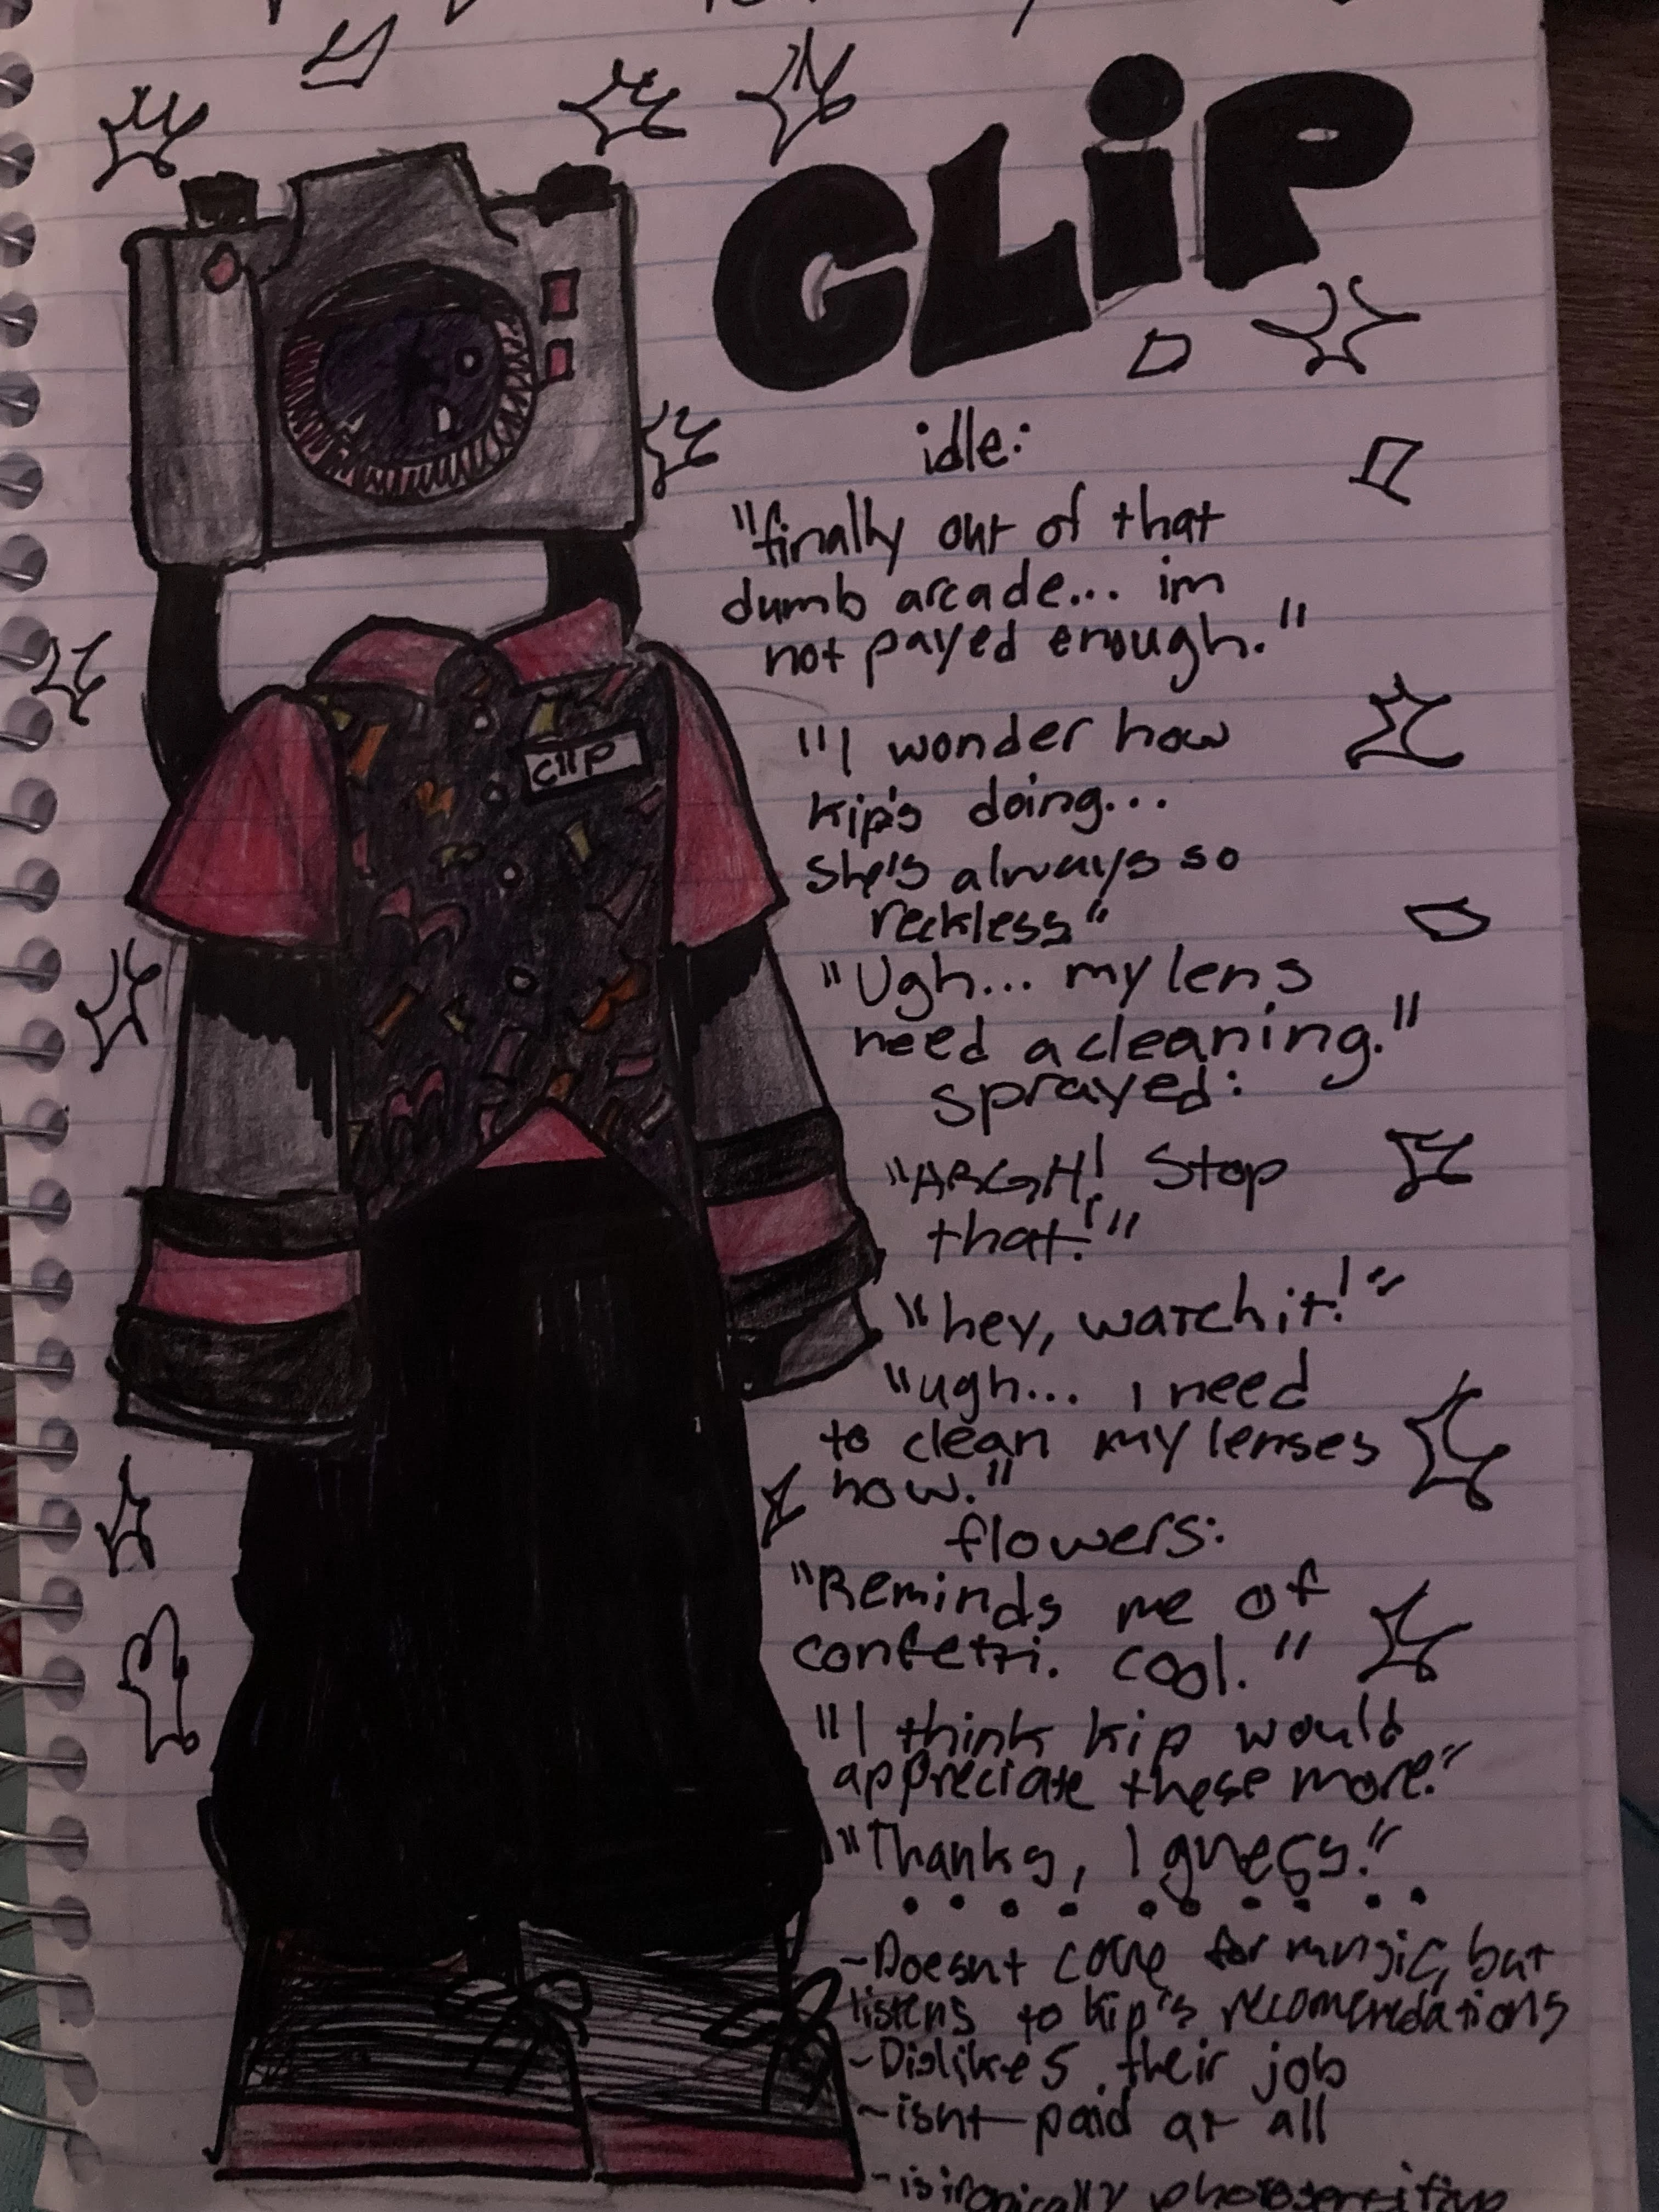 CLiP
clip
idle:
"finally out of that
dumb arcade... im
not payed enough."
"I wonder how
kip's doing...
She's always so
reckless"
"Ugh... my lens
need a cleaning."
sprayed:
"ARGH! Stop
that!"
"hey, watch it!"
"ugh... i need
to clean my lenses
now."
flowers:
"Reminds me of
confetti. cool."
"I think kip would
appreciate these more."
"Thanks, I guess."
-Doesnt care for music, but
listens to kip's recomendations
-Dislikes their job
-isnt paid at all
-is ironically photosensitive